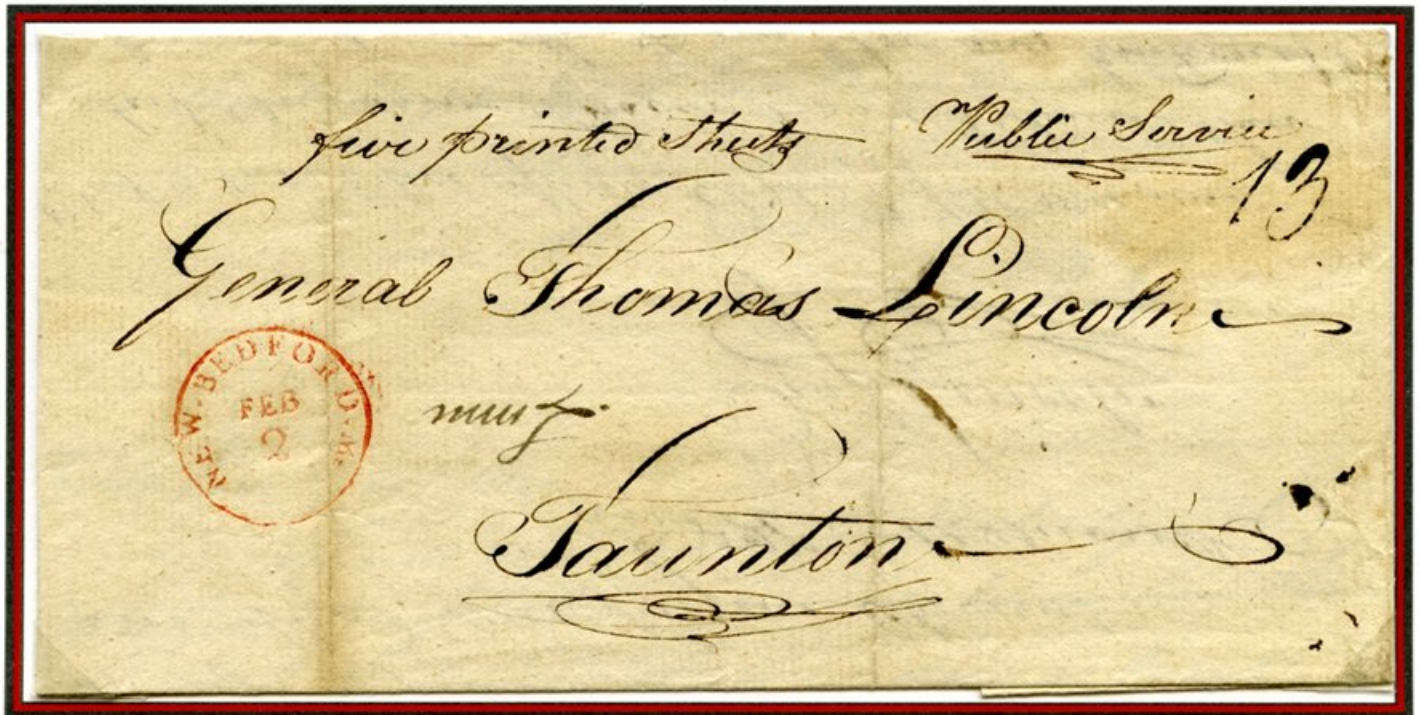 five printed Sheets Public Service
13
General Thomas Lincoln
NEW-BEDFORD
FEB
2
Taunton